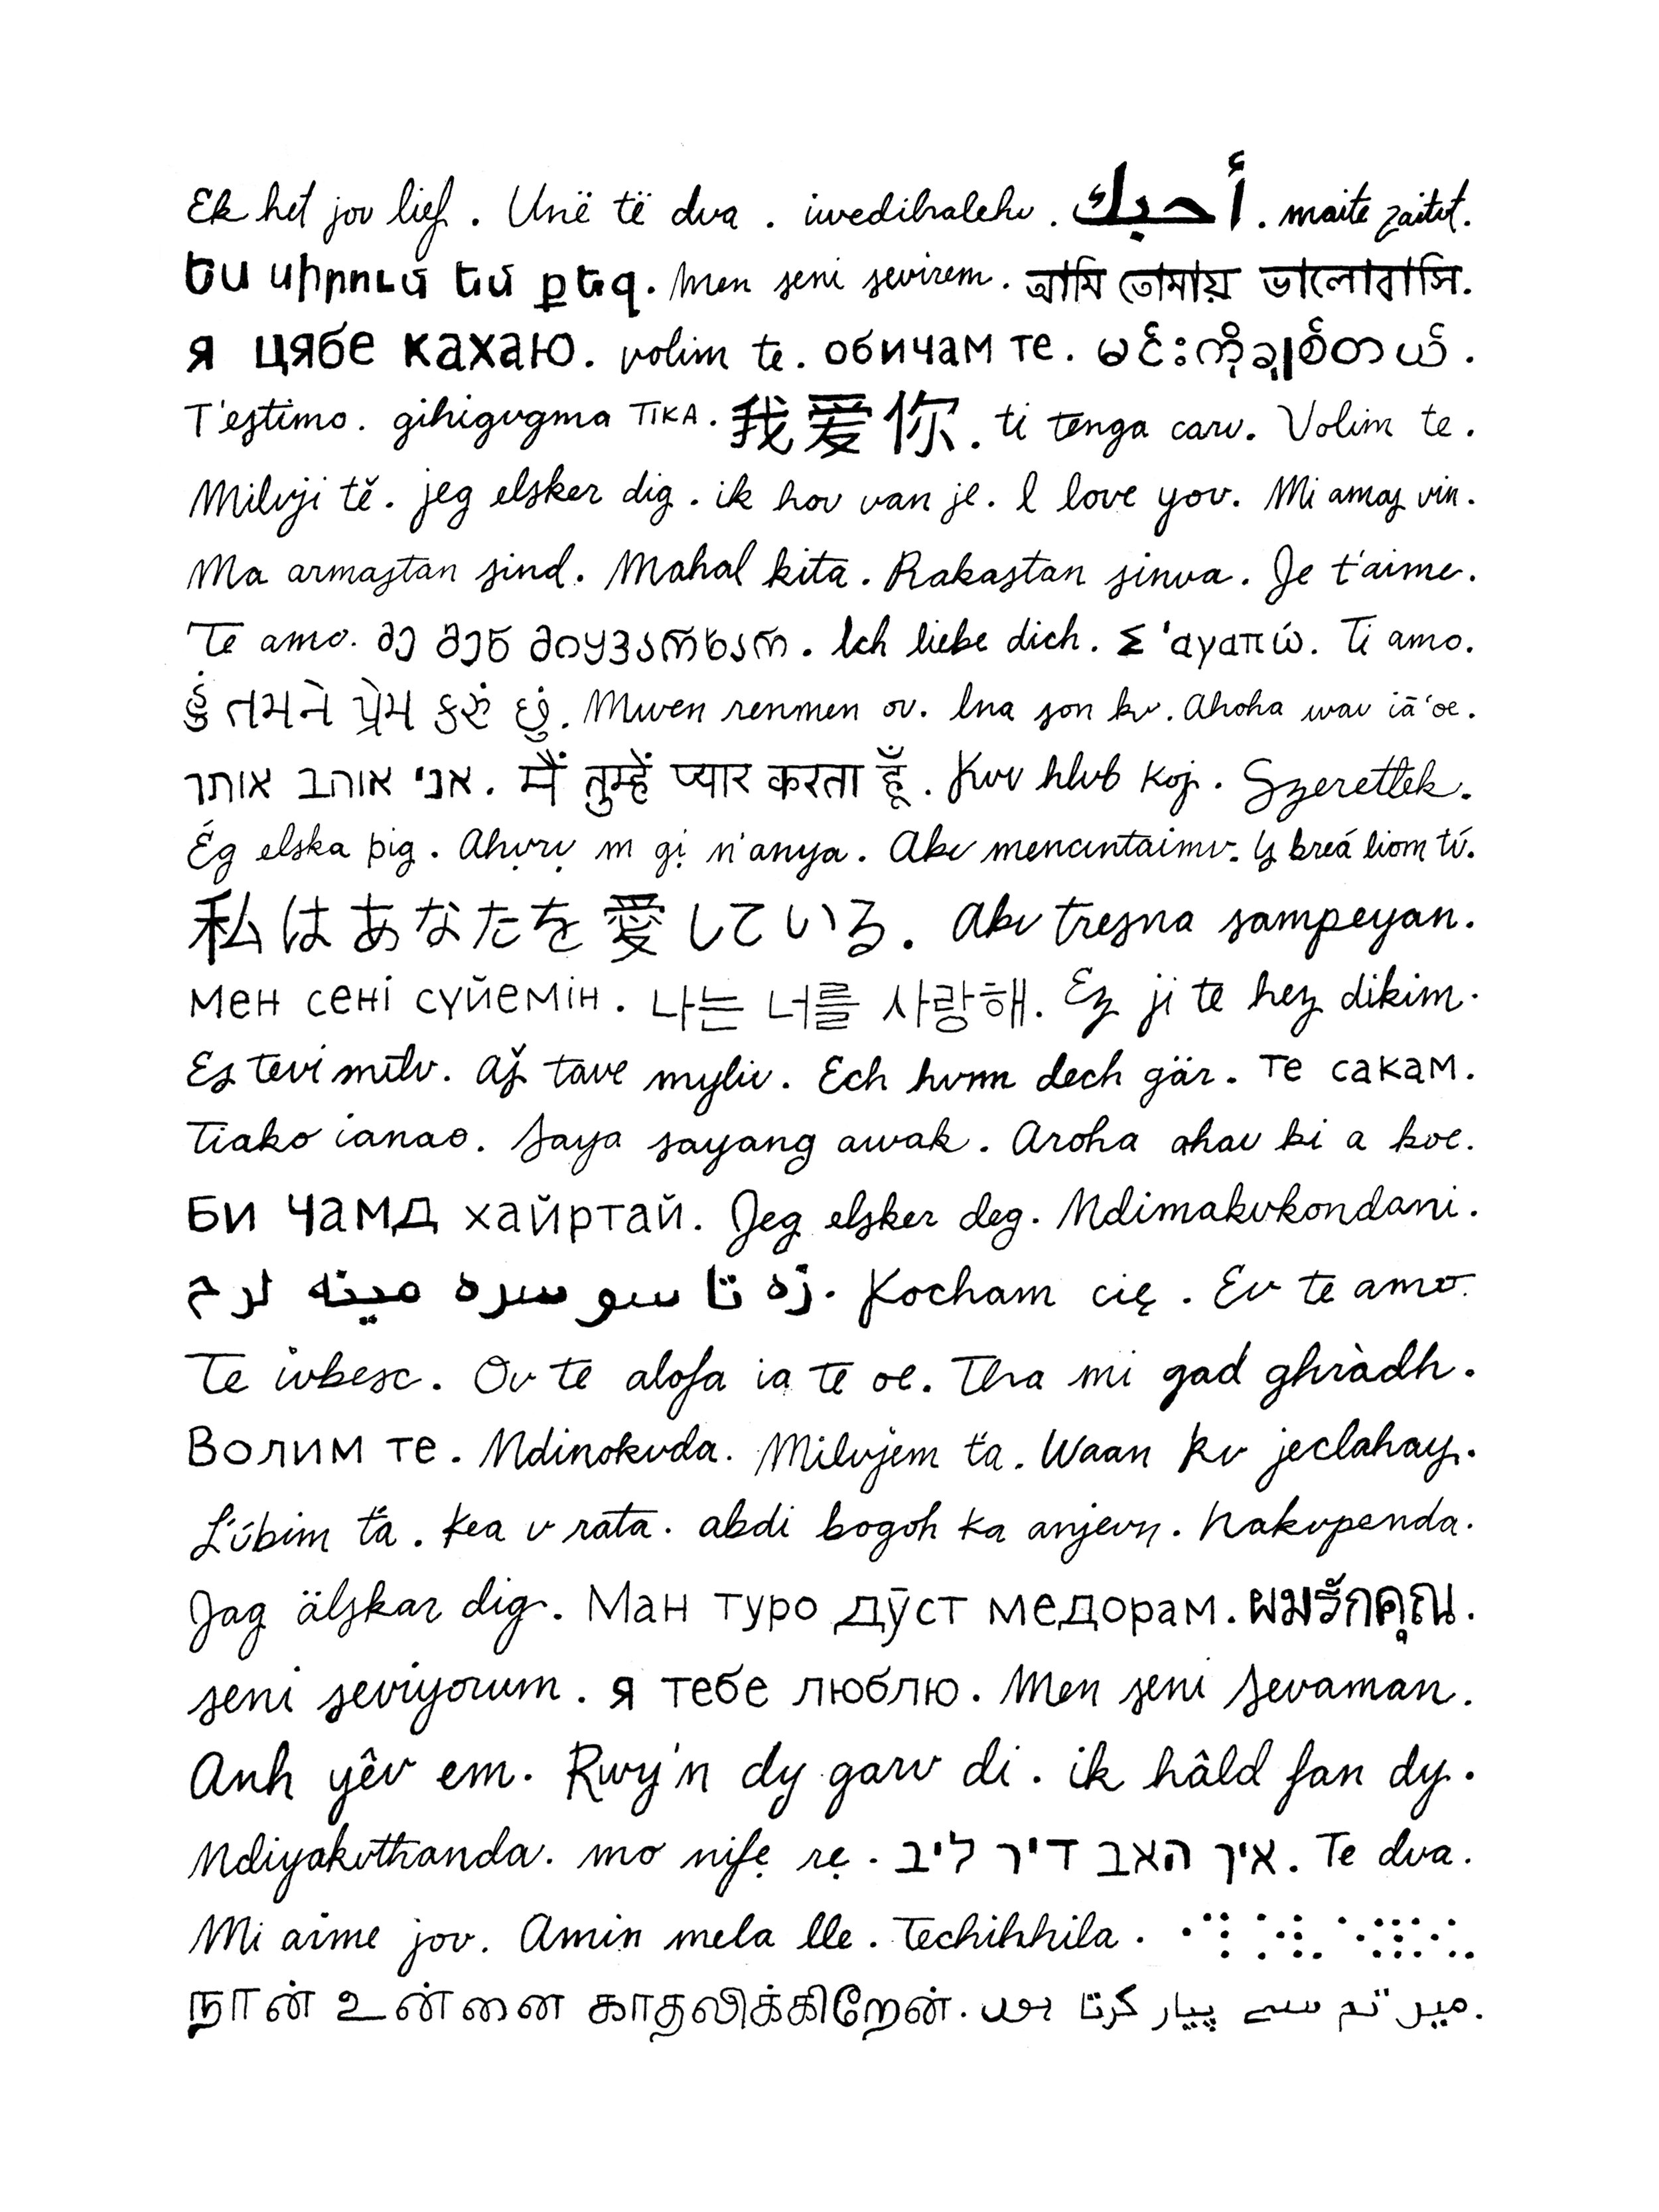 Ek het jou lief. Unë të dua. iwedibalehu. أحبك. maite zaitut.
Ես սիրում եմ քեզ. Men seni sevirem. আমি তোমায় ভালোবাসি.
я цябе кахаю. volim te. обичам те. မင်းကိုချစ်တယ်.
T'estimo. gihigugma TIKA. 我爱你. ti tengu caru. Volim te.
Miluji tě. jeg elsker dig. ik hou van je. I love you. Mi amas vin.
Ma armastan sind. Mahal kita. Rakastan sinua. Je t'aime.
Te amo. მე შენ მიყვარხარ. Ich liebe dich. Σ'αγαπώ. Ti amo.
હું તમને પ્રેમ કરું છું. Mwen renmen ou. Ina son ku. Aloha wau iā 'oe.
אני אוהב אותך. मैं तुम्हें प्यार करता हूँ. Kuv hlub koj. Szeretlek.
Ég elska þig. Ahụrụ m gị n'anya. Aku mencintaimu. Is breá liom tú.
私はあなたを愛している. Aku tresna sampeyan.
мен сені сүйемін. 나는 너를 사랑해. Ez ji te hez dikim.
Es tevi mīlu. Aš tave myliu. Ech hunn dech gär. Те сакам.
Tiako ianao. Saya sayang awak. Aroha ahau ki a koe.
Би чамд хайртай. Jeg elsker deg. Ndimakukondani.
زه تا سو سره مينه لرم. Kocham cię. Eu te amo.
Te iubesc. Ou te alofa ia te oe. Tha mi gad ghràdh.
Волим те. Ndinokuda. Milujem ťa. Waan ku jeclahay.
Ľúbim ťa. Kea u rata. abdi bogoh ka anjeun. Nakupenda.
Jag älskar dig. Ман туро дӯст медорам. ผมรักคุณ.
seni seviyorum. я тебе люблю. Men seni sevaman.
Anh yêu em. Rwy'n dy garu di. ik hâld fan dy.
Ndiyakuthanda. mo nifẹ rẹ. איך האב דיר ליב. Te dua.
Mi aime jou. Amin mela lle. Techihhila.
நான் உன்னை காதலிக்கிறேன். میں تم سے پیار کرتا ہوں.